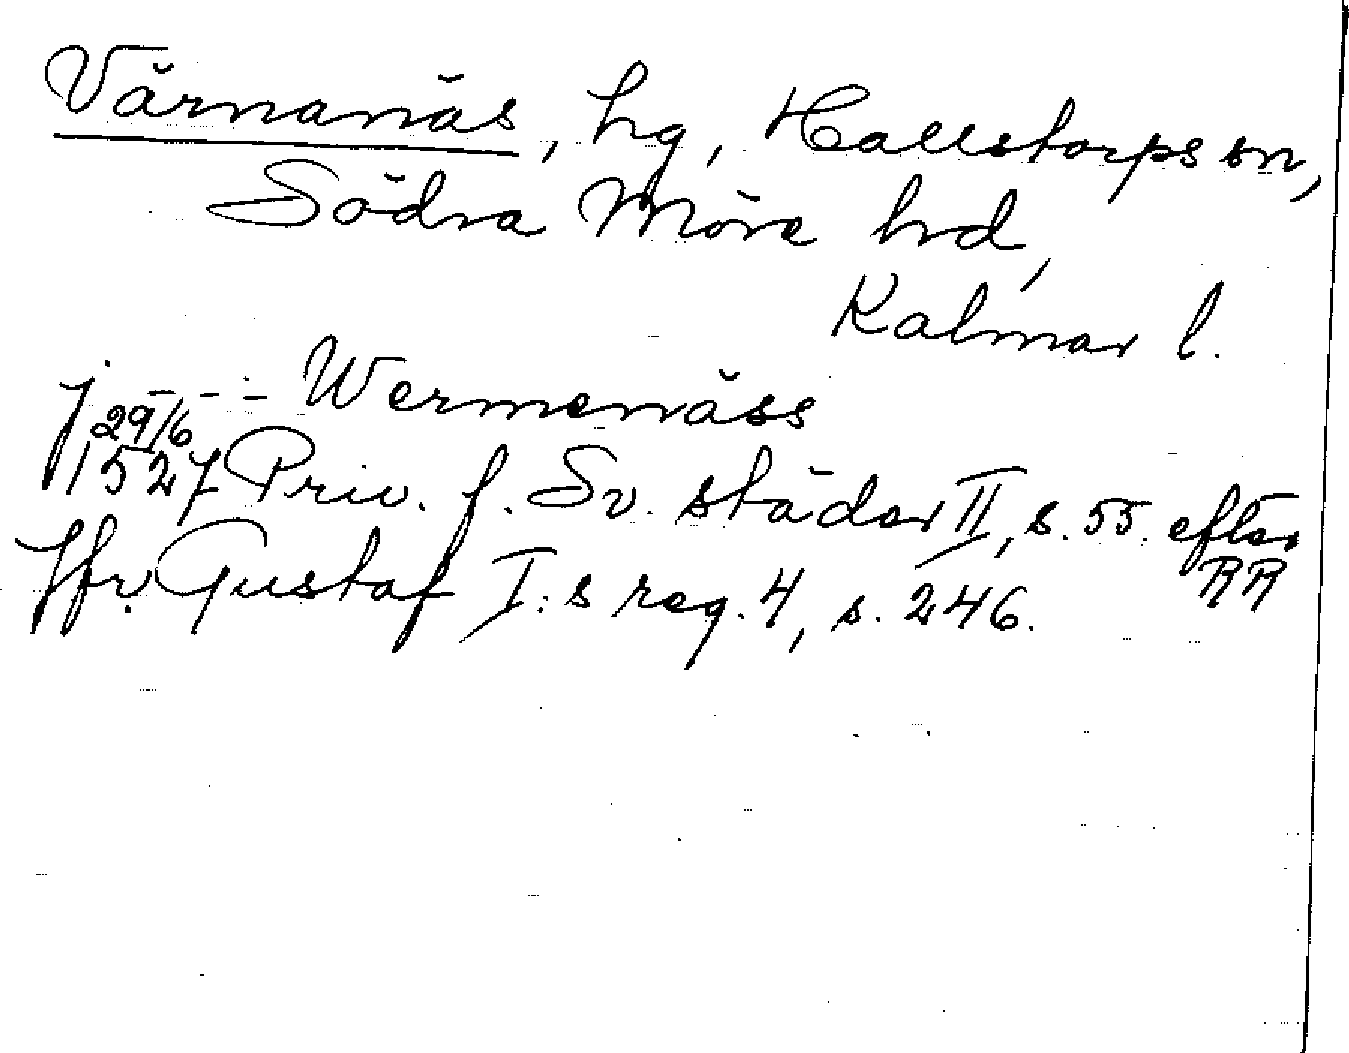 Värnanäs, hg, Hallstorps sn,
Södra Möre hd,
Kalmar l.
j - - - Wermenäss
29/6
1527 Priv. f. Sv. städer II, s. 55. efter
RR
Jfr. Gustaf I:s reg. 4, s. 246.